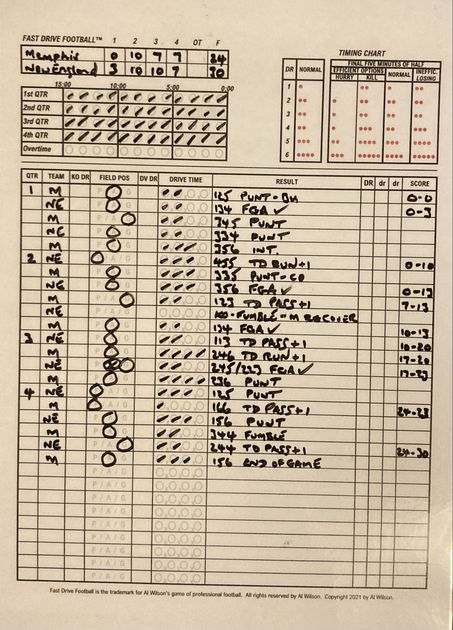 FAST DRIVE FOOTBALL™ 1 2 3 4 OT F
Memphis 0 10 7 7 24
New England 3 10 10 7 30
15:00 10:00 5:00 0:00
1st QTR
2nd QTR
3rd QTR
4th QTR
Overtime
TIMING CHART
FINAL FIVE MINUTES OF HALF
DR NORMAL EFFICIENT OPTIONS NORMAL INEFFIC. LOSING
HURRY KILL
1
2
3
4
5
6
QTR TEAM KO DR FIELD POS DV DR DRIVE TIME RESULT DR dr dr SCORE
1 M 125 PUNT-BM 0-0
NE 134 FGA ✓ 0-3
M 345 PUNT
NE 334 PUNT
M 356 INT.
2 NE 455 TD RUN+1 0-10
M 335 PUNT-CO
NE 356 FGA ✓ 0-13
M 123 TD PASS+1 7-13
NE FUMBLE-M RECOVER
M 134 FGA ✓ 10-13
3 NE 113 TD PASS+1 10-20
M 246 TD RUN+1 17-20
NE 245/223 FGA ✓ 17-23
M 236 PUNT
4 NE 125 PUNT
M 166 TD PASS+1 24-23
NE 156 PUNT
M 344 FUMBLE
NE 244 TD PASS+1 24-30
M 156 END OF GAME
Fast Drive Football is the trademark for Al Wilson's game of professional football. All rights reserved by Al Wilson. Copyright 2021 by Al Wilson.